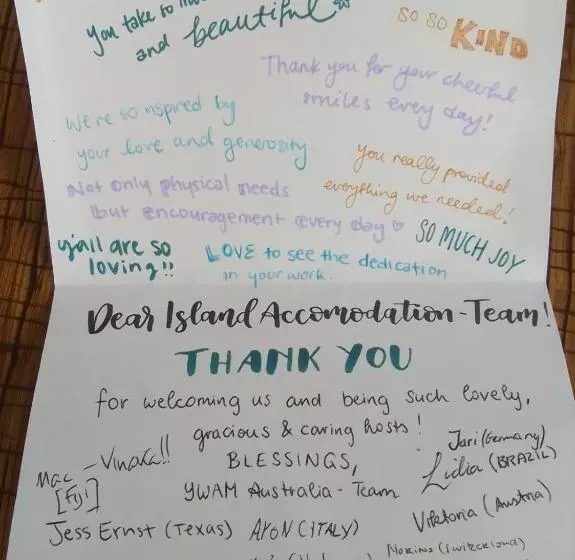 You take so
and beautiful
SO SO KIND
Thank you for your cheerful
smiles every day!
We're so inspired by
your love and generosity.
you really provided
everything we needed!
Not only physical needs
but encouragement every day ♡
SO MUCH JOY
y'all are so
loving!!
LOVE to see the dedication
in your work.
Dear Island Accomodation-Team!
THANK YOU
for welcoming us and being such lovely,
gracious & caring hosts!
BLESSINGS,
YWAM Australia-Team
Mac - Vinaka!!
[Fiji]
Jari (Germany)
Lidia (BRAZIL)
Viktoria (Austria)
Jess Ernst (Texas)
(ITALY)
(Switzerland)